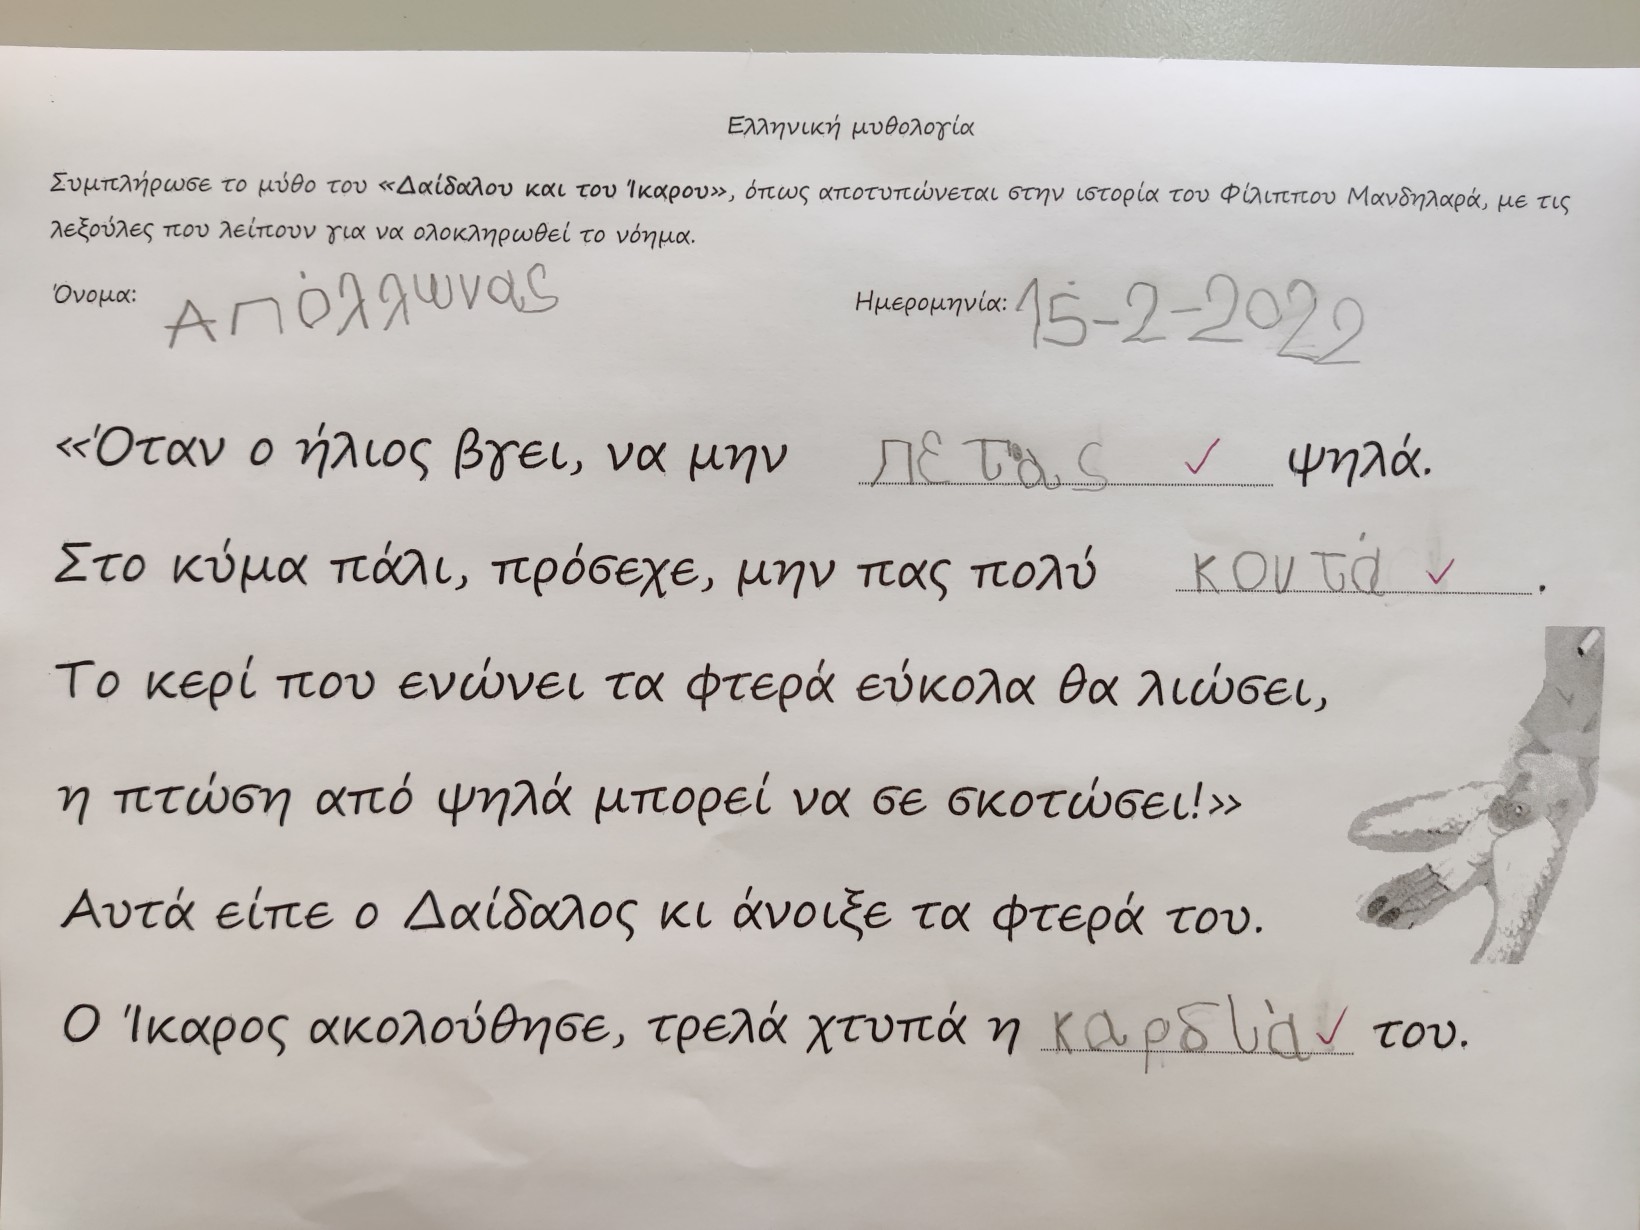 Ελληνική μυθολογία
Συμπλήρωσε το μύθο του «Δαίδαλου και του Ίκαρου», όπως αποτυπώνεται στην ιστορία του Φίλιππου Μανδηλαρά, με τις
λεξούλες που λείπουν για να ολοκληρωθεί το νόημα.
Όνομα: Απόλλωνας Ημερομηνία: 15-2-2022
«Όταν ο ήλιος βγει, να μην πετάς ✓ ψηλά.
Στο κύμα πάλι, πρόσεχε, μην πας πολύ κοντά ✓ .
Το κερί που ενώνει τα φτερά εύκολα θα λιώσει,
η πτώση από ψηλά μπορεί να σε σκοτώσει!»
Αυτά είπε ο Δαίδαλος κι άνοιξε τα φτερά του.
Ο Ίκαρος ακολούθησε, τρελά χτυπά η καρδιά ✓ του.